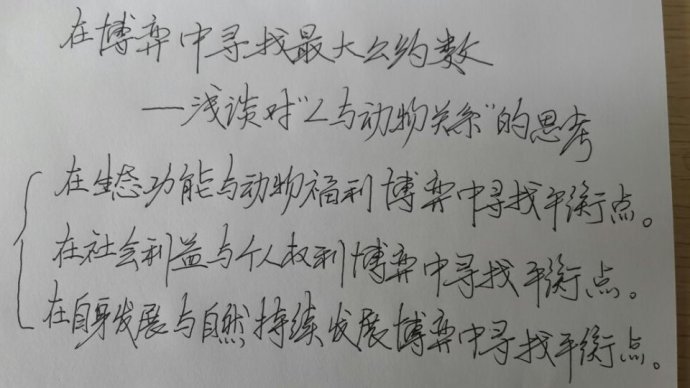 在博弈中寻找最大公约数
—浅谈对"人与动物关系"的思考
在生态功能与动物福利博弈中寻找平衡点。
在社会利益与个人权利博弈中寻找平衡点。
在自身发展与自然持续发展博弈中寻找平衡点。